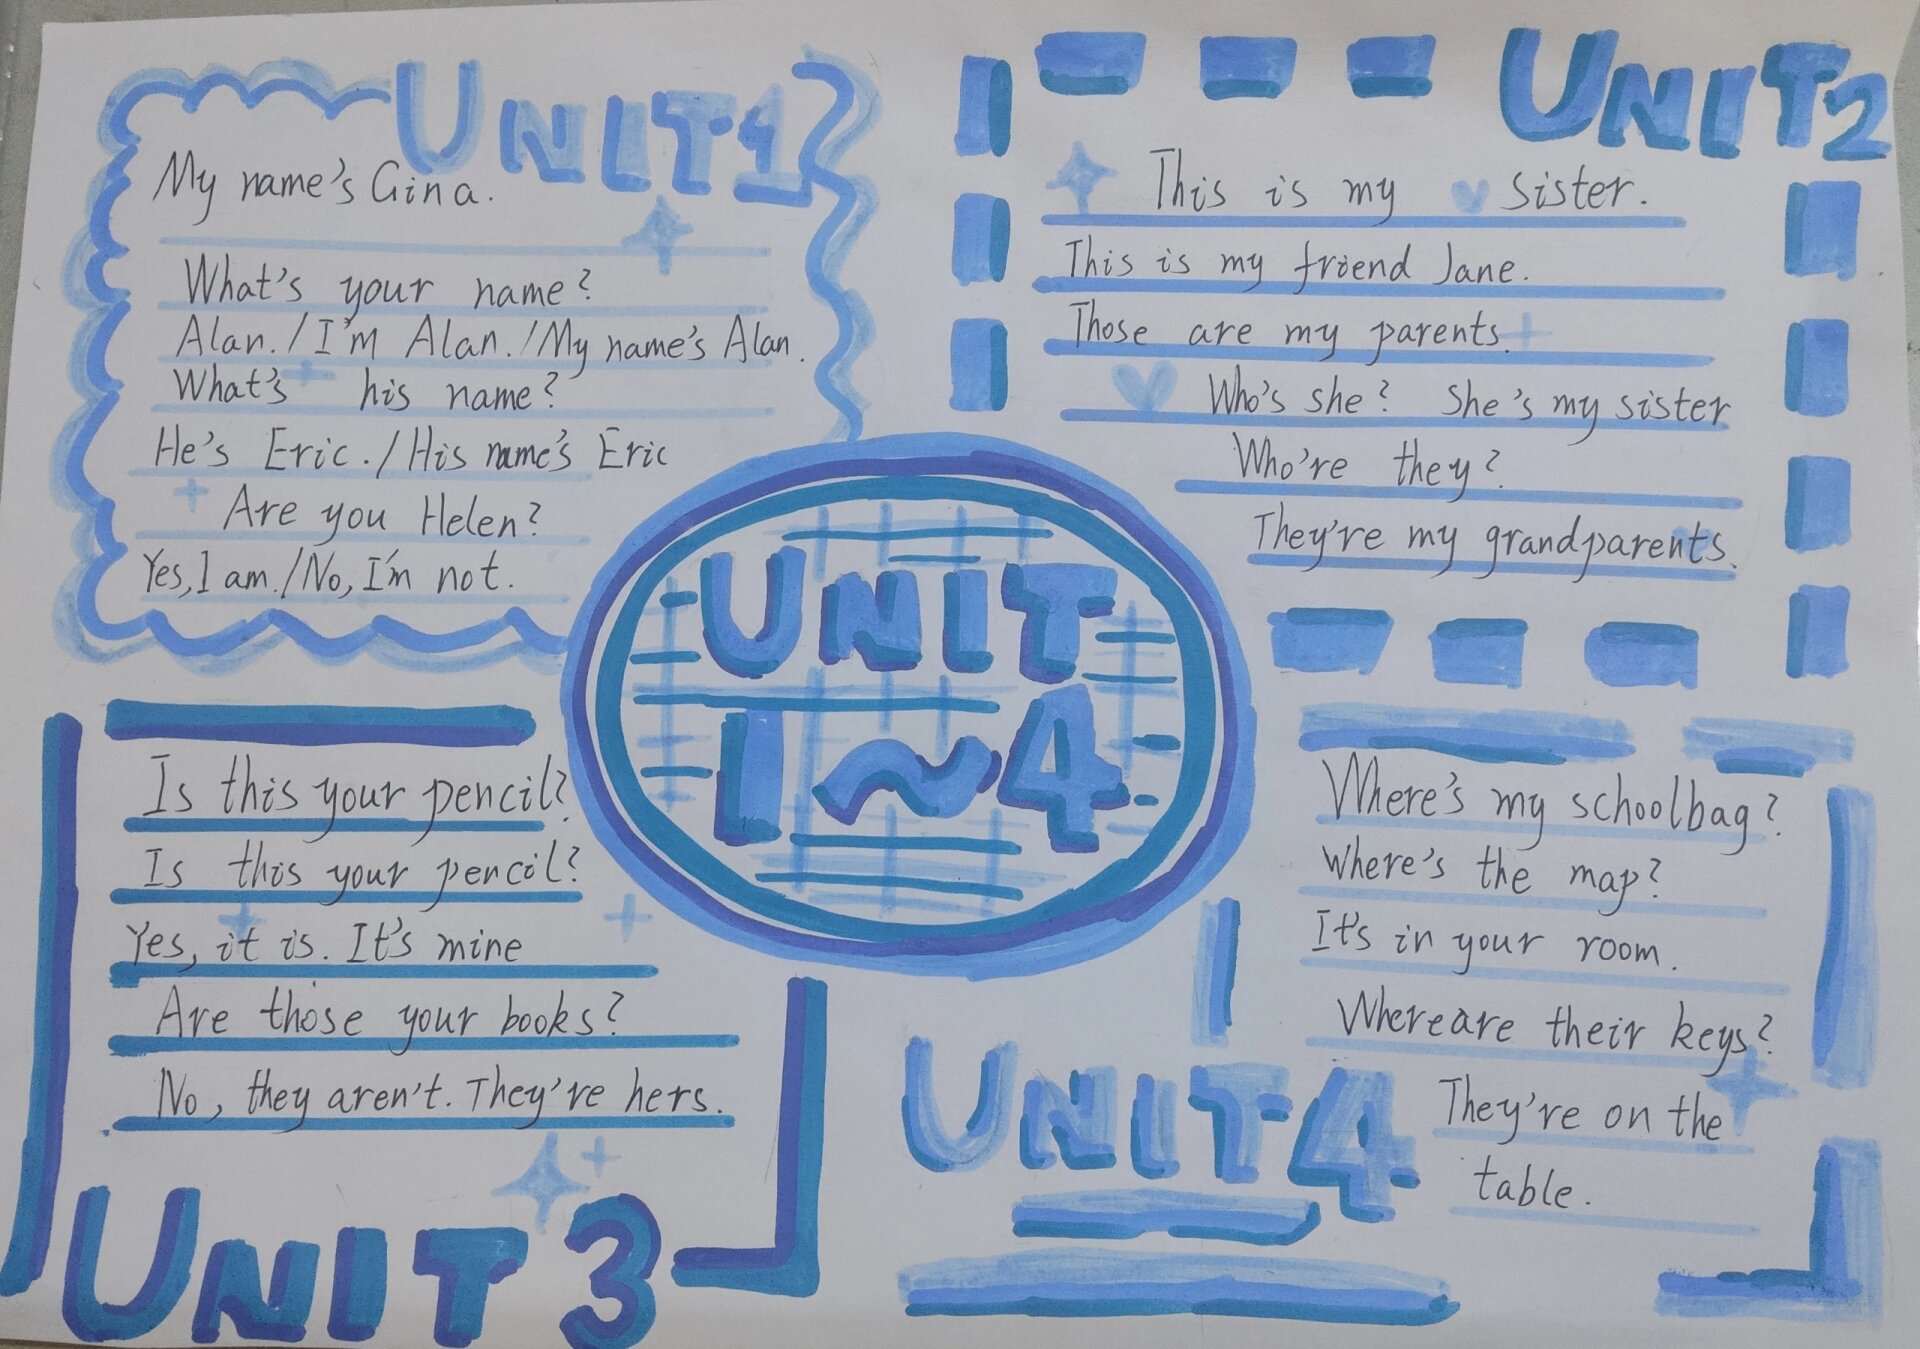 UNIT1
My name's Gina.
What's your name?
Alan./I'm Alan./My name's Alan.
What's his name?
He's Eric./His name's Eric
Are you Helen?
Yes,I am./No,I'm not.
UNIT2
This is my sister.
This is my friend Jane.
Those are my parents.
Who's she? She's my sister
Who're they?
They're my grandparents.
UNIT
1~4
Is this your pencil?
Is this your pencil?
Yes, it is. It's mine
Are those your books?
No, they aren't. They're hers.
UNIT 3
Where's my schoolbag?
Where's the map?
It's in your room.
Whereare their keys?
They're on the
table.
UNIT4